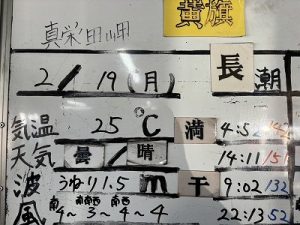 黄旗
真栄田岬
2/19(月) 長潮
気温 25℃ 満 4:52 142
天気 曇/晴 14:11 151
波 うねり1.5m 干 9:02 132
風 南4〜南南西3〜南西4〜4 22:13 52